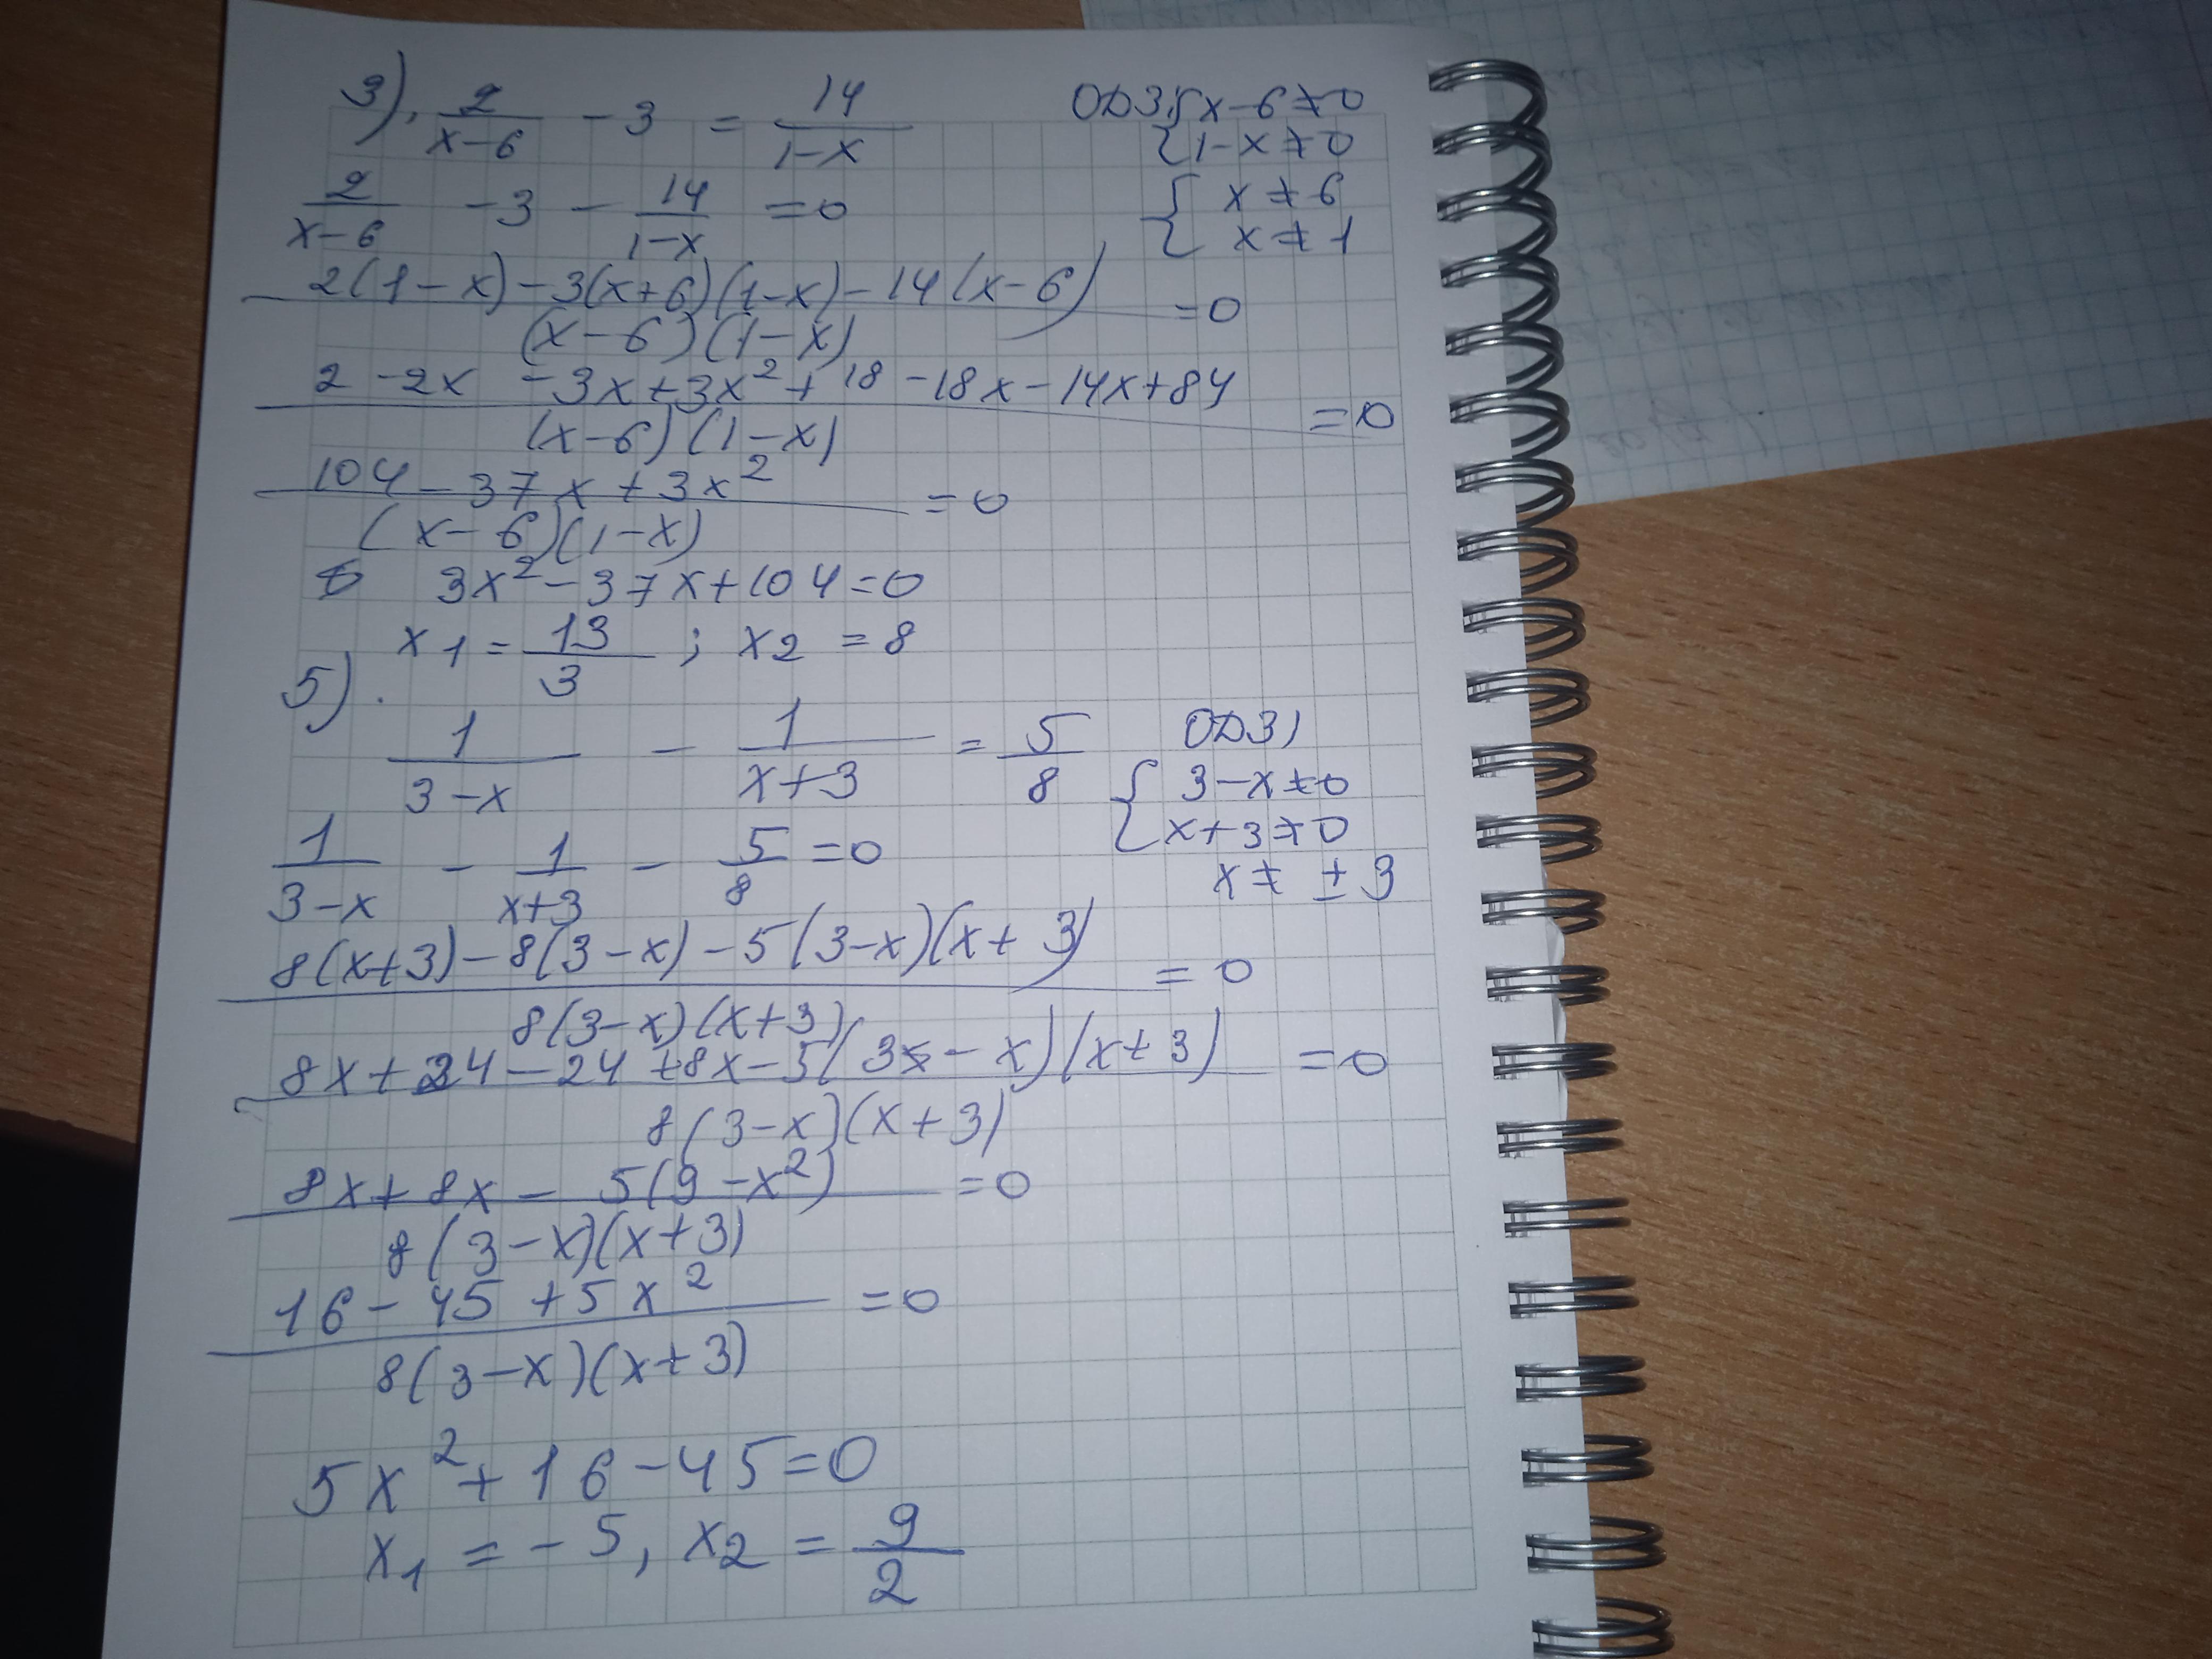 3). 2/(x-6) - 3 = 14/(1-x) ОДЗ: { x-6≠0
{ 1-x≠0
2/(x-6) - 3 - 14/(1-x) = 0 { x≠6
{ x≠1
(2(1-x)-3(x+6)(1-x)-14(x-6))/((x-6)(1-x)) = 0
(2-2x-3x+3x²+18-18x-14x+84)/((x-6)(1-x)) = 0
(104-37x+3x²)/((x-6)(1-x)) = 0
3x²-37x+104=0
x1 = 13/3 ; x2 = 8
5).
1/(3-x) - 1/(x+3) = 5/8 ОДЗ)
{ 3-x≠0
{ x+3≠0
1/(3-x) - 1/(x+3) - 5/8 = 0 x≠ ±3
(8(x+3)-8(3-x)-5(3-x)(x+3))/(8(3-x)(x+3)) = 0
(8x+24-24+8x-5(3-x)(x+3))/(8(3-x)(x+3)) = 0
(8x+8x-5(9-x²))/(8(3-x)(x+3)) = 0
(16-45+5x²)/(8(3-x)(x+3)) = 0
5x²+16-45=0
x1 = -5, x2 = 9/2